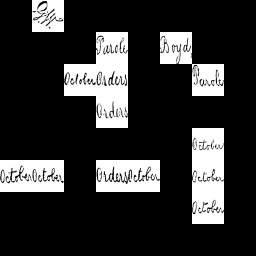 Parole Boyd,
October Orders Parole
Orders
October
October October Orders October October
October